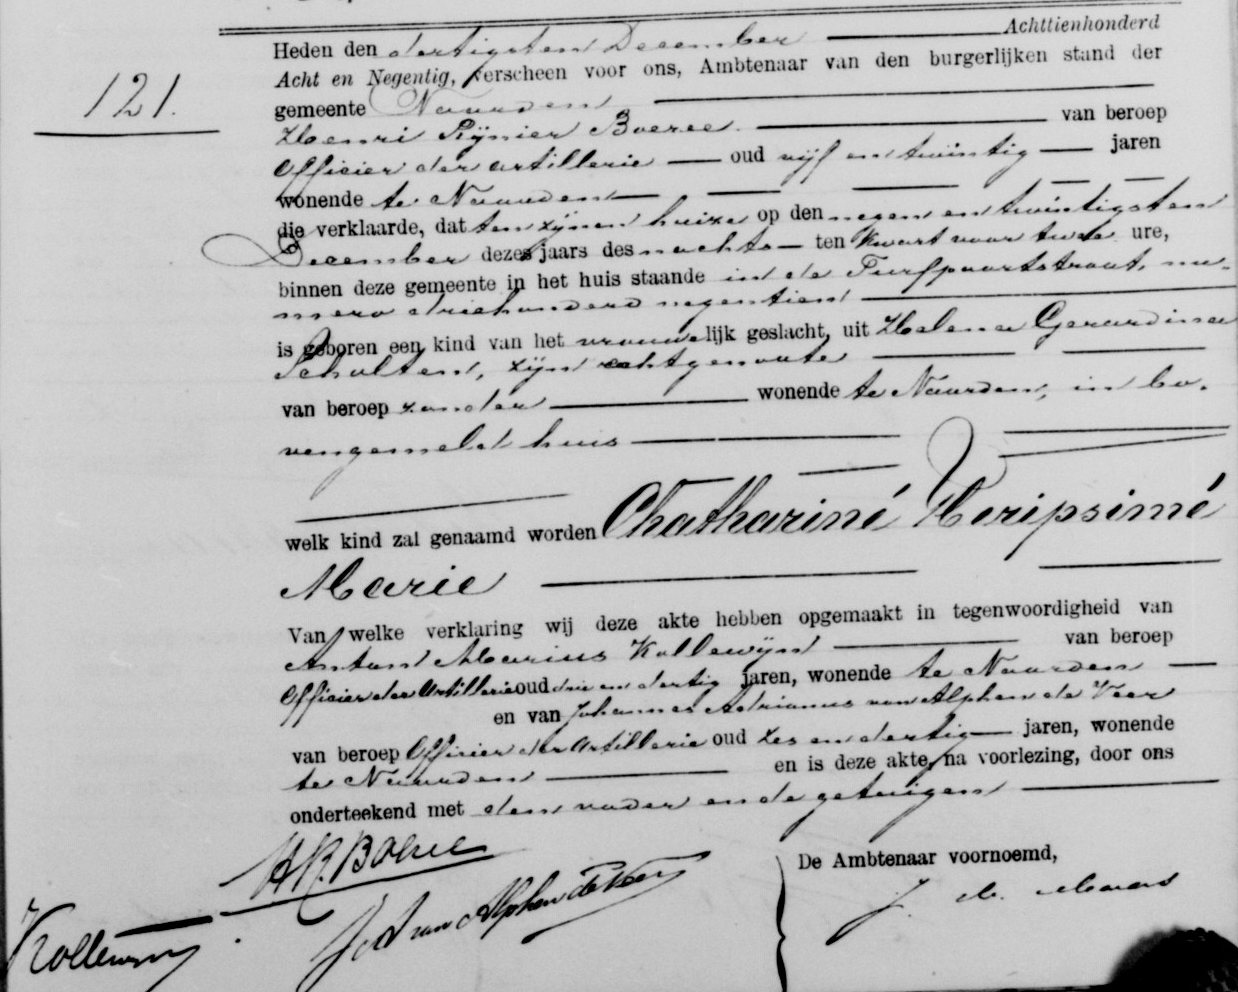 Heden den dertigsten December Achttienhonderd
121.
Acht en Negentig, verscheen voor ons, Ambtenaar van den burgerlijken stand der
gemeente Naarden
Henri Rijnier Boeree van beroep
Officier der artillerie oud vijf en twintig jaren
wonende te Naarden
die verklaarde, dat ten zijnen huize op den negen en twintigsten
December dezes jaars des nachts ten kwart voor twee ure,
binnen deze gemeente in het huis staande in de Turfpoortstraat, nu-
mero driehonderd negentien
is geboren een kind van het vrouwelijk geslacht, uit Helena Gerardina
Scholten, zijn echtgenoote
van beroep zonder wonende te Naarden, in bo-
vengemeld huis
welk kind zal genaamd worden Chathariné Heripsimé
Marie
Van welke verklaring wij deze akte hebben opgemaakt in tegenwoordigheid van
Anton Marius Kollewijn van beroep
Officier der Artillerie oud drie en dertig jaren, wonende te Naarden
en van Johannes Adrianus van Alphen de Veer
van beroep Officier der Artillerie oud zes en dertig jaren, wonende
te Naarden en is deze akte, na voorlezing, door ons
onderteekend met den vader en de getuigen
HRBoeree
De Ambtenaar voornoemd,
JA van Alphen de Veer
Kollewijn